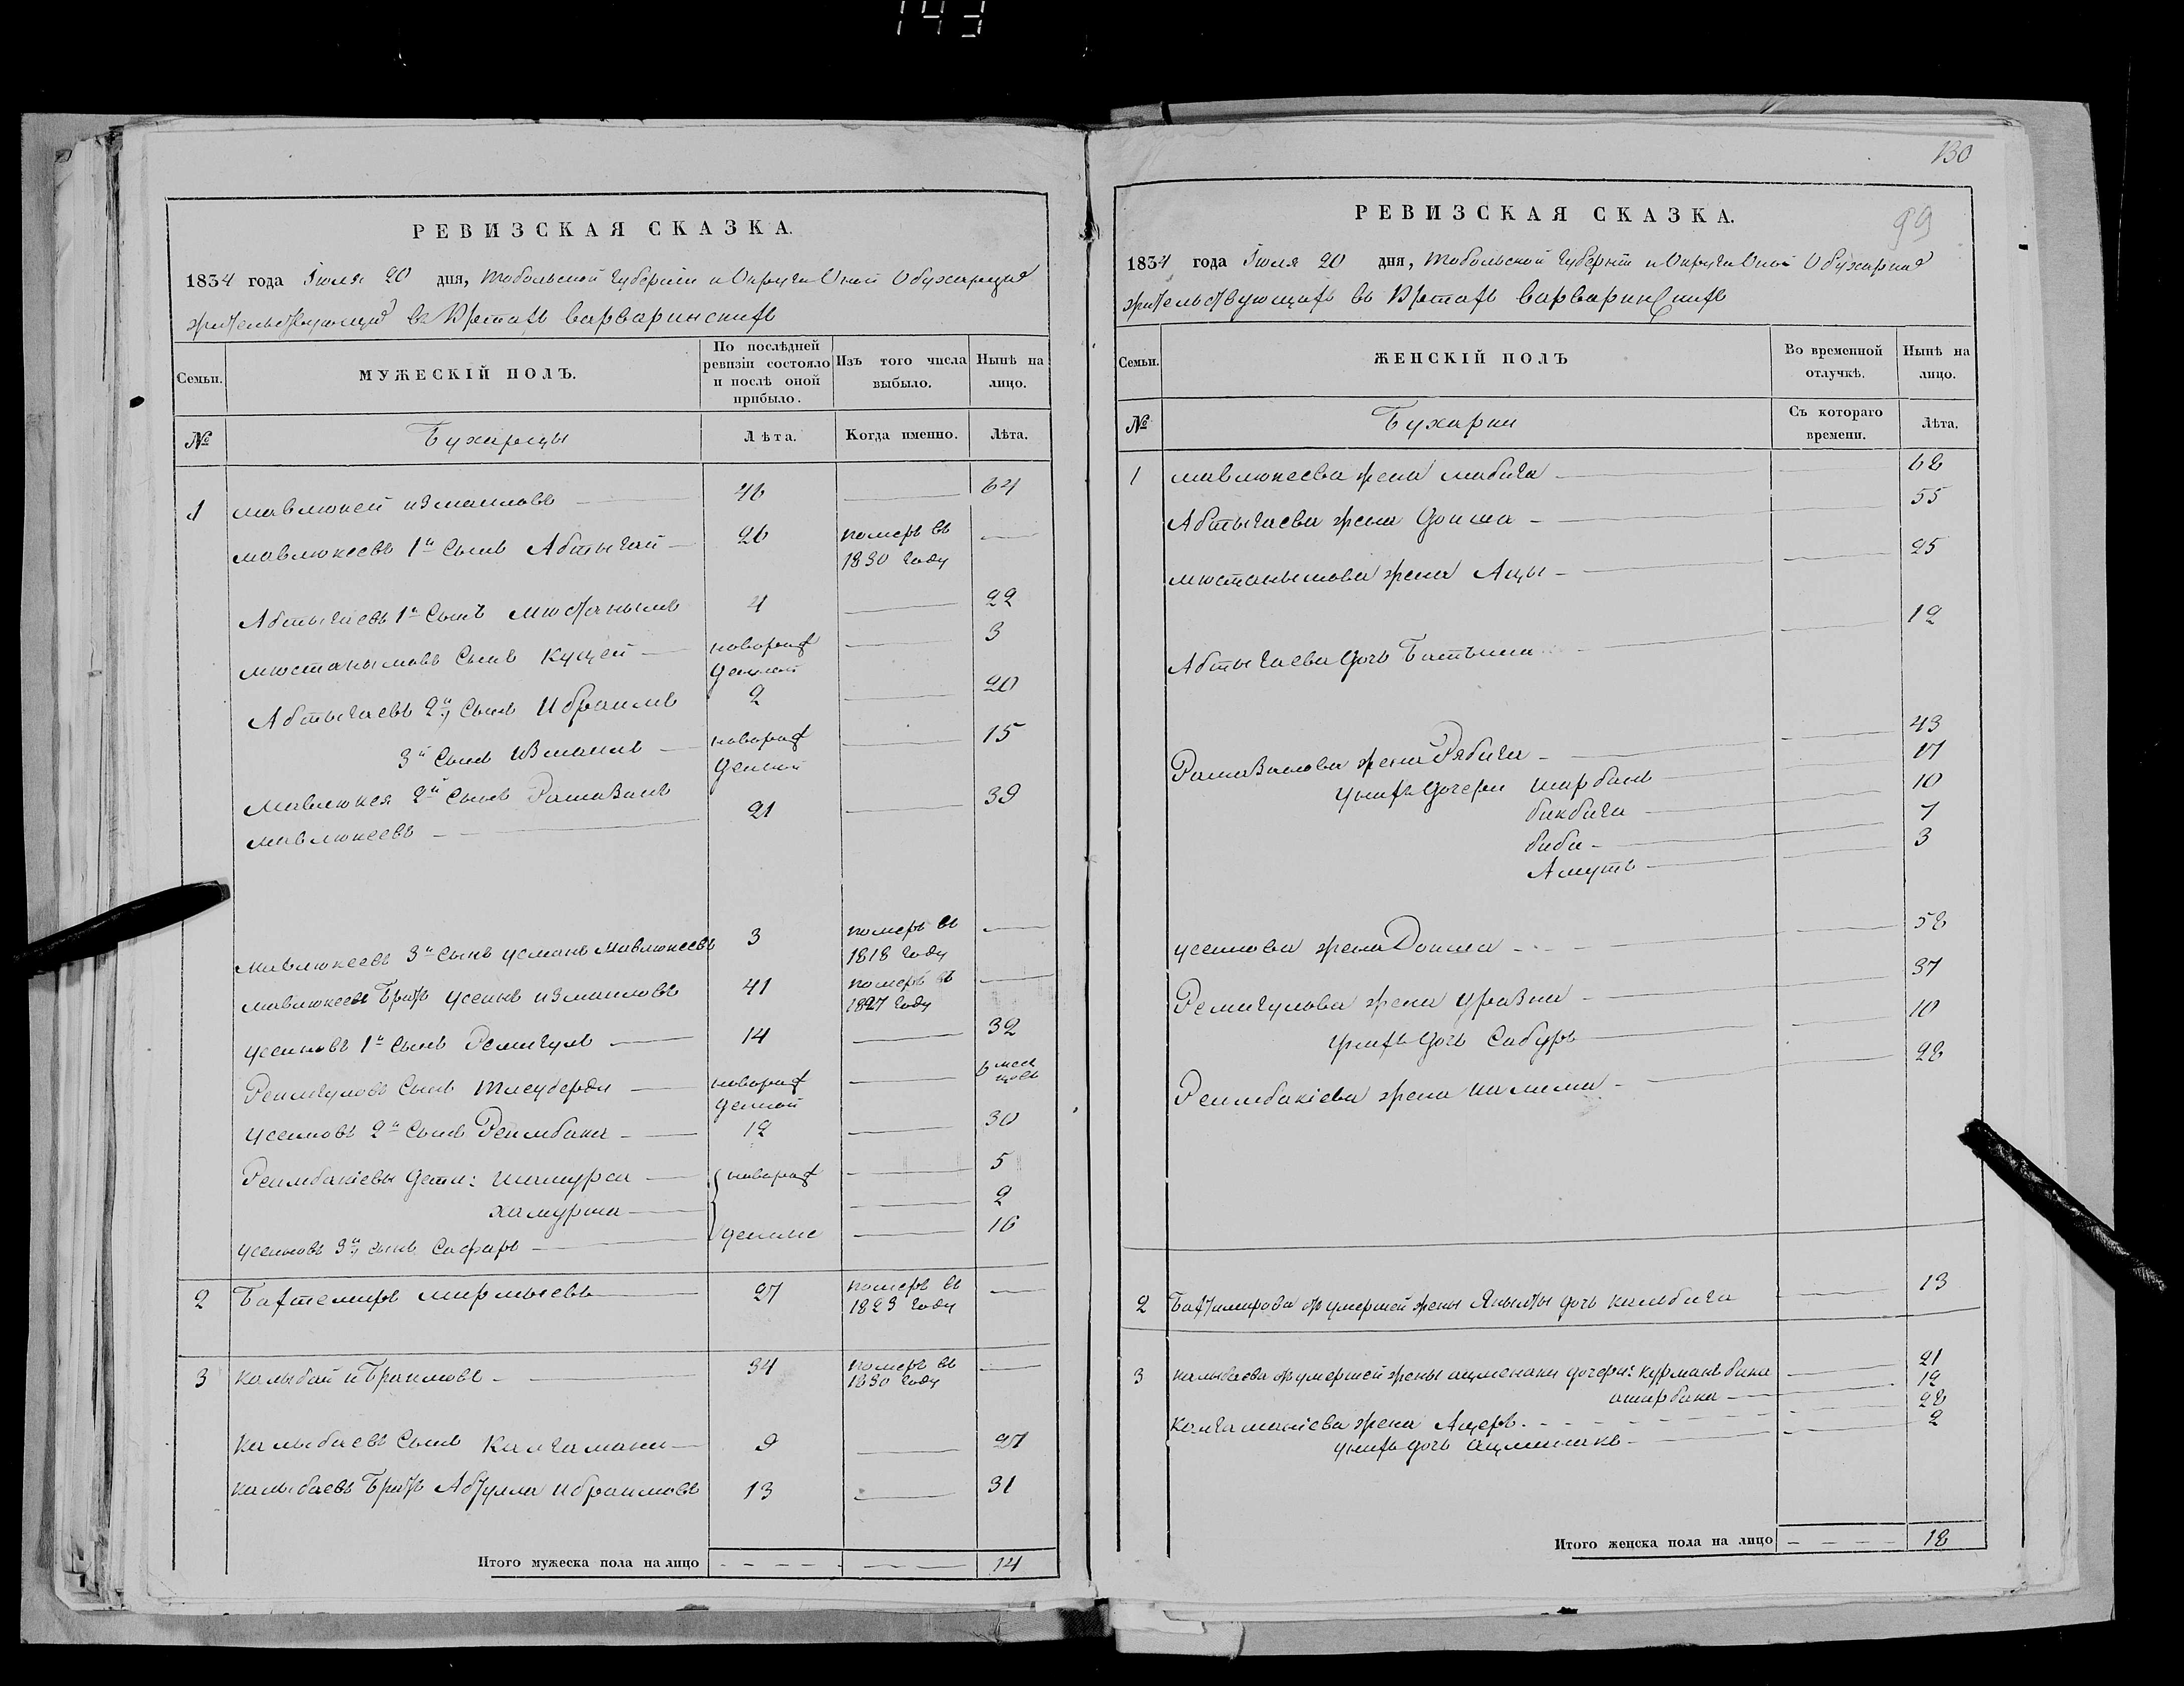 143
РЕВИЗСКАЯ СКАЗКА.
1834 года Іюля 20 дня, Тобольской Губерніи и Округи Оной Обухарцах
жительствующих въ Юртахъ Варваринскихъ
Семьи.
МУЖЕСКІЙ ПОЛЪ.
По послѣдней ревизіи состояло и послѣ оной прибыло.
Изъ того числа выбыло.
Нынѣ на лицо.
№
Бухарцы
Лѣта.
Когда именно.
Лѣта.
1 мавлюкей измаиловъ 46 64
мавлюкеевъ 1й Сынъ Абтыгай 26 померъ въ 1830 году
Абтыгаевъ 1й Сынъ мюстанымъ 4 22
мюстанымовъ Сынъ Куцей новорожденной 3
Абтыгаевъ 2й Сынъ Ибраимъ 2 20
3й Сынъ Измаилъ новорожденной 15
мавлюкея 2й Сынъ Рамазанъ
мавлюкеевъ 21 39
мавлюкеевъ 3й Сынъ усманъ мавлюкеевъ 3 померъ въ 1818 году
мавлюкеевъ Братъ усеинъ измаиловъ 41 померъ въ 1827 году
усеиновъ 1й Сынъ Ремигулъ 14 32
Ремигуловъ Сынъ Тлеуберди новорожденной 6 месецовъ
усеиновъ 2й Сынъ Реимбаки 12 30
Реимбакіевы Дети: шамурса новорож 5
хамурша 2
усеиновъ 3й сынъ Сафаръ денные 16
2 Бахтемиръ мирмыевъ 27 померъ въ 1823 году
3 калыбай ибраимовъ 34 померъ въ 1830 году
калыбаевъ Сынъ Калгамани 9 27
калыбаевъ Братъ Абдулла ибраимовъ 13 31
Итого мужеска пола на лицо 14
130
99
РЕВИЗСКАЯ СКАЗКА.
1834 года Іюля 20 дня, Тобольской Губерніи и Округи Оной Обухарках
жительствующихъ въ Юртахъ Варваринскихъ
Семьи.
ЖЕНСКІЙ ПОЛЪ
Во временной отлучкѣ.
Нынѣ на лицо.
№
Бухарки
Съ котораго времени.
Лѣта.
1 мавлюкеева жена мабига 62
Абтыгаева жена Доиша 55
мюстанымова жена Ацы 25
Абтыгаева Дочь Батыша 12
Рамазанова жена Рябига 43
у нихъ Дочери шарбанъ 17
бикбига 10
биби 7
Амутъ 3
усеинова жена Доиша 52
Ремигулова жена уразна 37
у нихъ Дочь Сабуръ 10
Реимбакіева жена калима 22
2 Бахтимирова отъ умершей жены Яныты дочь кальбига 13
3 калыбаева отъ умершей жены ацменаки дочери: курманъ бика 21
ашарбика 12
Калгаманіева жена Ацеръ 22
у нихъ дочь ацминакъ 2
Итого женска пола на лицо 18